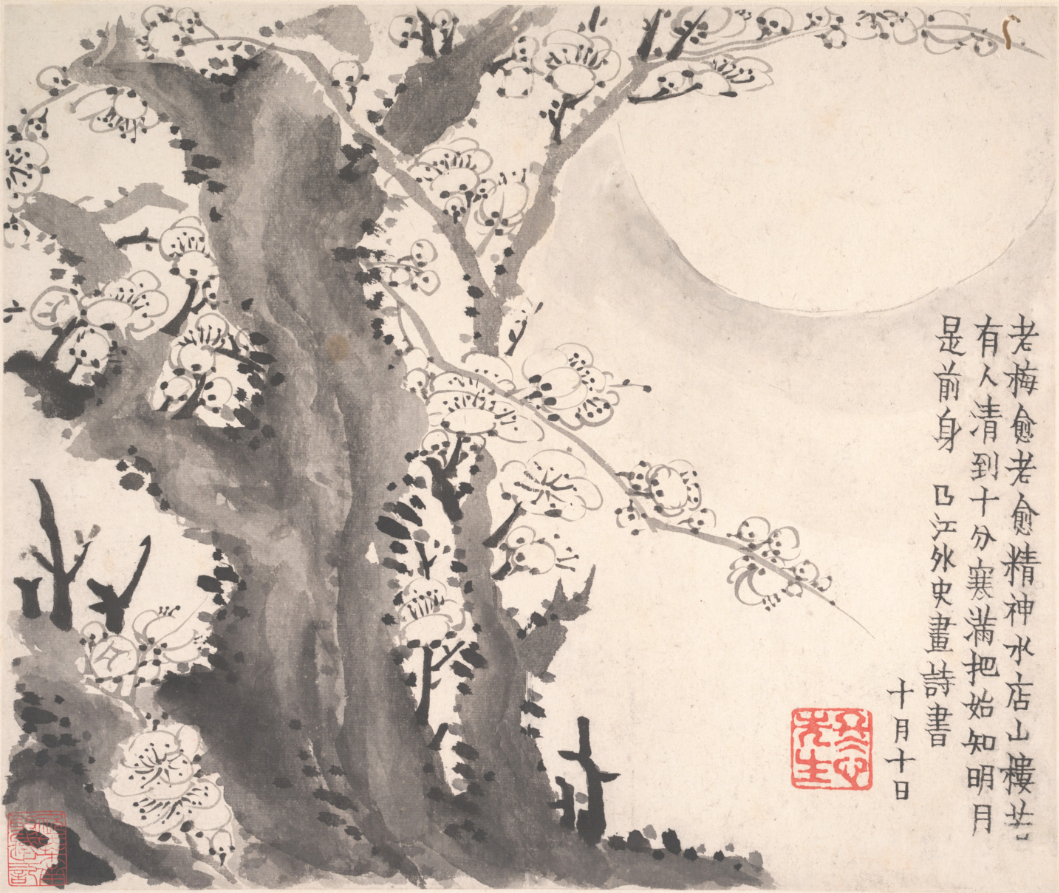 老梅愈老愈精神水店山樓若
有人清到十分寒滿把始知明月
是前身 曲江外史畫詩書
十月十日
冬心先生